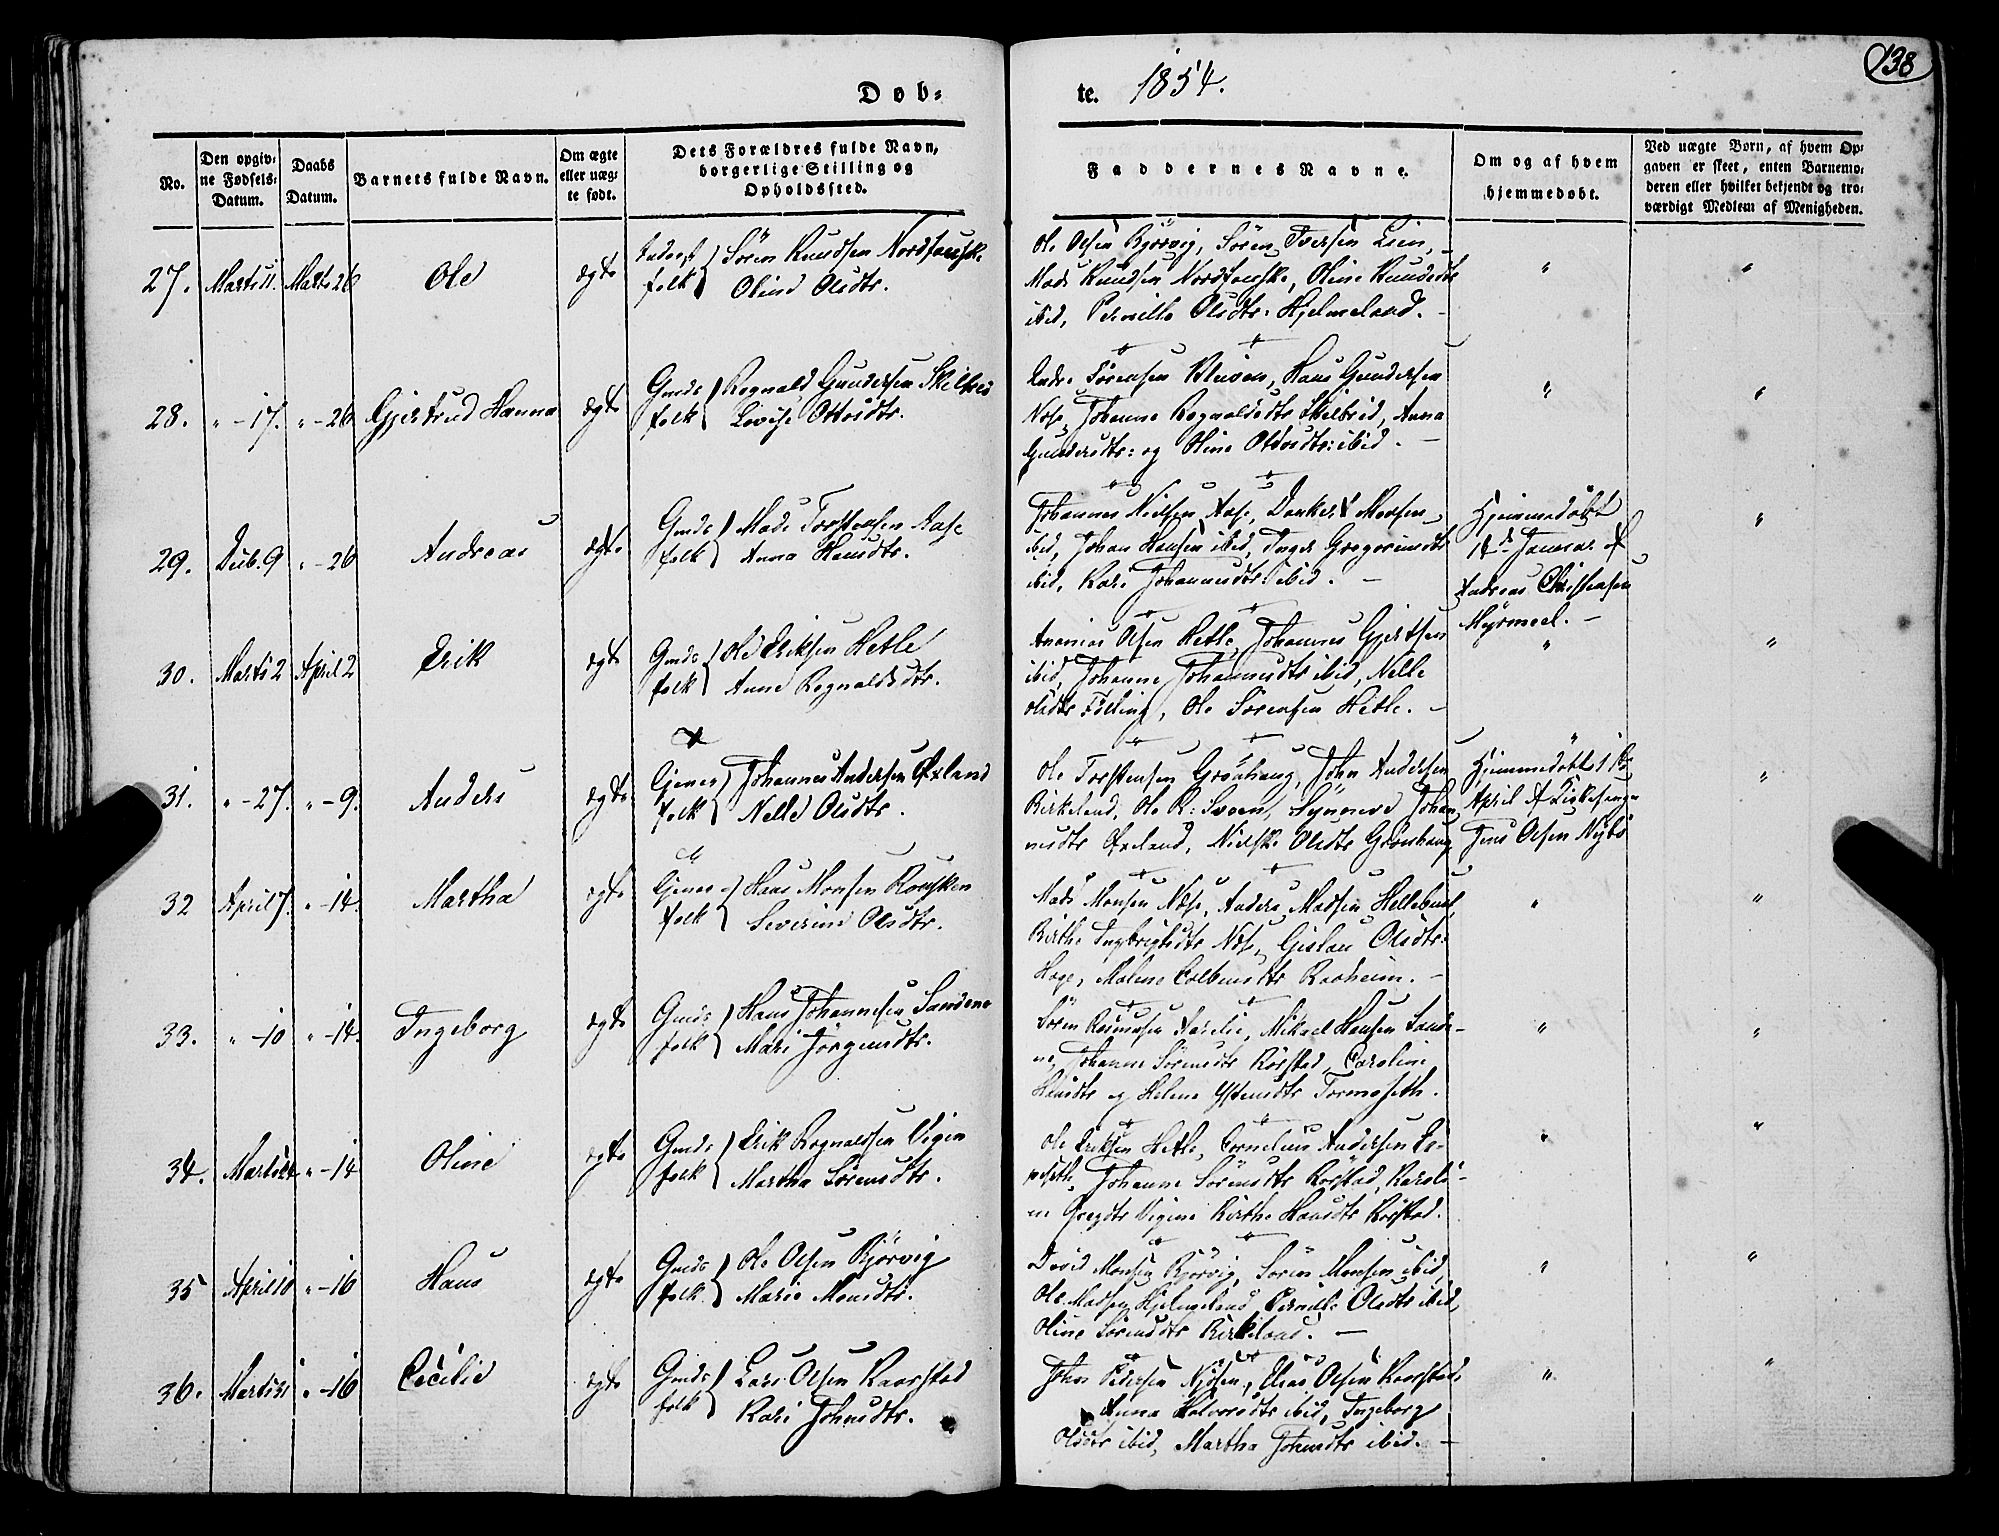 138
Døb-
te. 1854.
No.
Den opgivne Fødsels-Datum.
Daabs Datum.
Barnets fulde Navn.
Om ægte eller uægte født.
Dets Forældres fulde Navn, borgerlige Stilling og Opholdssted.
Faddernes Navne.
Om og af hvem hjemmedøbt.
Ved uægte Børn, af hvem Opgaven er skeet, enten Barnemoderen eller hvilket bekjendt og troværdigt Medlem af Menigheden.
27. Marts 11. Marts 26 Ole ægte
folk Sören Knudsen
Oline Olsdtr.
Ole Olsen Bjørvig, Sören Iversen Lien,
Mads Knudsen Oline Knudsdtr
ibid, Pernille Olsdtr: Hjelmeland. -
" "
28. " - 17. " - 26 Gjertrud Hanna ægte
Gmds Rognald Gundersen Skilbred
folk Lovise Ottosdtr.
Andr. Sörensen Kleiven, Hans Gundersen
Nese, Johanne Rognaldsdtr Skilbred, Anna
Gundersdtr: og Oline Ottosdtr: ibid. -
" "
29. " - 26 Andreas ægte
Gmds Mads Torstensen Aase
folk Anna Hansdtr.
Johannes Nielsen Aase, Dankert Monsen
ibid, Johan Hansen ibid, Inger
ibid, Kari Johannesdtr ibid. -
Hjemmedöbt
Januar af
Andreas Christensen
Myrmel. -
"
30. Marts 2 April 2 Erik ægte
Gmds Ole Eriksen Hetle
folk Anne Rognaldsdtr.
Ananias Olsen Hetle, Johannes Gjertsen
ibid, Johanne Johannesdtr ibid, Nelle
Olsdtr Ole Sörensen Hetle. -
" "
31. " - 27. " - 9. Anders ægte
Tjener Johannes Andersen Öxland
folk Nelle Olsdtr.
Ole Torstensen Grönhaug, John Andersen
Birkeland, Ole R: Svoen, Synneve Johan-
nesdtr Öxeland, Olsdtr Grönhaug
Hjemmedöbt 1ste
April af Kirkesanger
Jens Olsen Nybö
"
32 April 7. " - 14. Martha ægte
Tjener Hans Monsen
folk Severine Olsdtr.
Mads Monsen Nese, Anders Madsen
Birthe Ingebrigtsdtr Nese, Olsdtr:
Malene Raaheim. -
" "
33. " - 10 " - 14. Ingeborg ægte
Gmds Hans Johannesen Sandene
folk Mari Jörgensdtr.
Sören Rasmusen Mikael Hansen Sande-
ne, Johanne Sörensdtr Rörstad, Caroline
Hansdtr og Helene
" "
34. Marts " - 14 Oline ægte
Gmds Erik Rognaldsen Vigen
folk Martha Sörensdtr.
Ole Eriksen Hetle, Cornelius Andersen
Johanne Sörensdtr Rörstad, Karoli-
ne Birthe Hansdtr Rörstad.
" "
35 April 10 " - 16 Hans ægte
Gmds Ole Olsen Bjørvig
folk Marie Monsdtr.
David Monsen Bjørvig, Sören Monsen ibid,
Ole Madsen Hjelmeland, Pernille Olsdtr ibid,
Oline Sörensdtr Birkeland. -
" "
36. Marts " - 16 Cecilie ægte
Gmds Lars Olsen Raarstad
folk Kari Johnsdtr.
John Pedersen Elias Olsen Raarstad,
Anna Halvorsdtr ibid, Ingeborg
Olsdtr ibid, Martha Johnsdtr ibid. -
" "